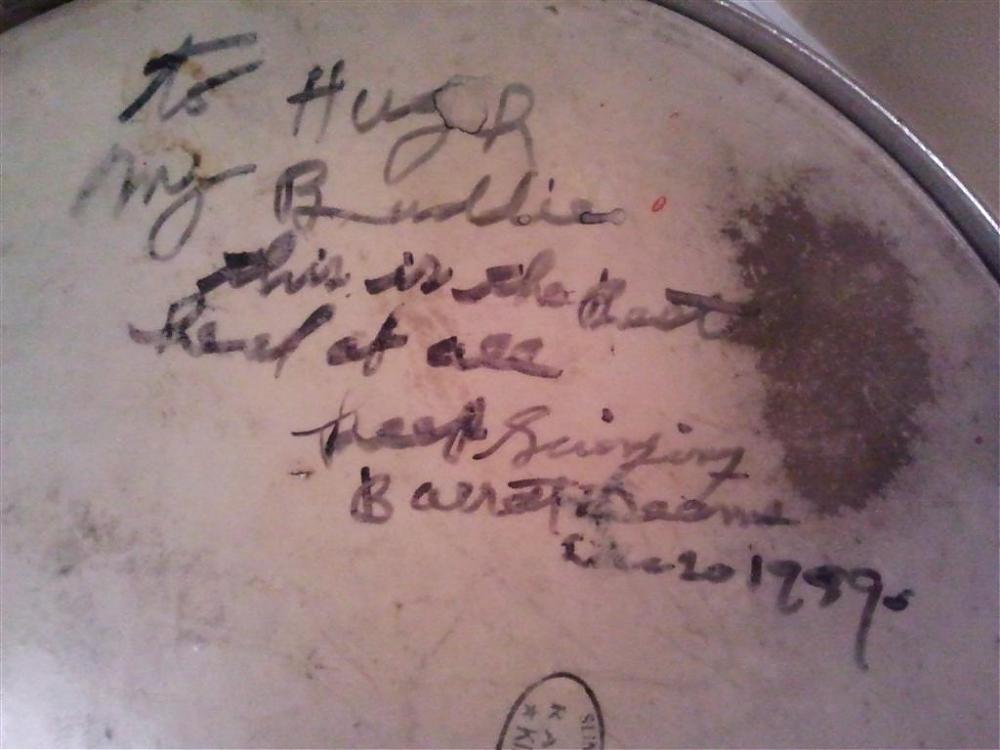 to Hugh
My Buddie
this is the Best
head of all
keep Swinging
Barrett Deems
Dec 20 1989
SLIN
KA
*K